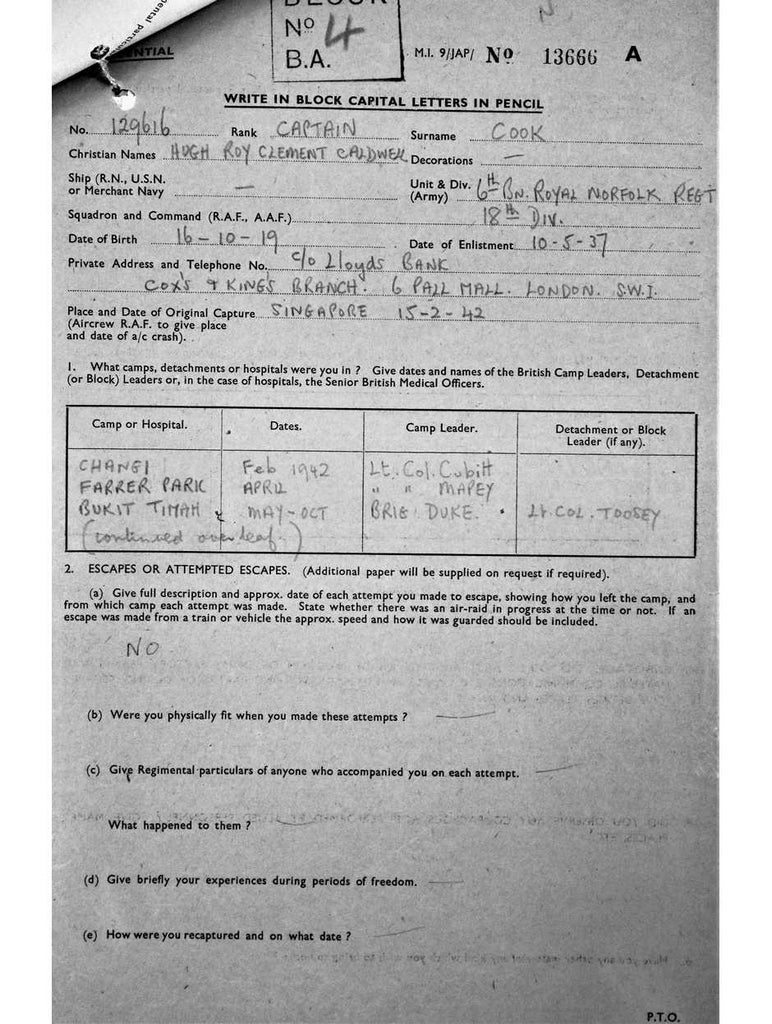 ental particu
ENTIAL
BLOCK
No 4
B.A.
M.I. 9/JAP/ No 13666 A
WRITE IN BLOCK CAPITAL LETTERS IN PENCIL
No. 129616 Rank CAPTAIN Surname COOK
Christian Names HUGH ROY CLEMENT CALDWELL Decorations —
Ship (R.N., U.S.N.
or Merchant Navy —
Unit & Div. 6TH BN. ROYAL NORFOLK REGT
(Army)
Squadron and Command (R.A.F., A.A.F.) 18th DIV.
Date of Birth 16-10-19 Date of Enlistment 10-5-37
Private Address and Telephone No. C/O Lloyds BANK
COX'S & KING'S BRANCH. 6 PALL MALL. LONDON. S.W.1.
Place and Date of Original Capture SINGAPORE 15-2-42
(Aircrew R.A.F. to give place
and date of a/c crash).
1. What camps, detachments or hospitals were you in ? Give dates and names of the British Camp Leaders, Detachment
(or Block) Leaders or, in the case of hospitals, the Senior British Medical Officers.
Camp or Hospital. Dates. Camp Leader. Detachment or Block
Leader (if any).
CHANGI Feb 1942 Lt. Col. Cubitt
FARRER PARK APRIL " " MAPEY
BUKIT TIMAH MAY-OCT BRIG DUKE. Lt. COL. TOOSEY
(continued overleaf.)
2. ESCAPES OR ATTEMPTED ESCAPES. (Additional paper will be supplied on request if required).
(a) Give full description and approx. date of each attempt you made to escape, showing how you left the camp, and
from which camp each attempt was made. State whether there was an air-raid in progress at the time or not. If an
escape was made from a train or vehicle the approx. speed and how it was guarded should be included.
NO
(b) Were you physically fit when you made these attempts ? —
(c) Give Regimental particulars of anyone who accompanied you on each attempt. —
What happened to them ? —
(d) Give briefly your experiences during periods of freedom. —
(e) How were you recaptured and on what date ? —
P.T.O.